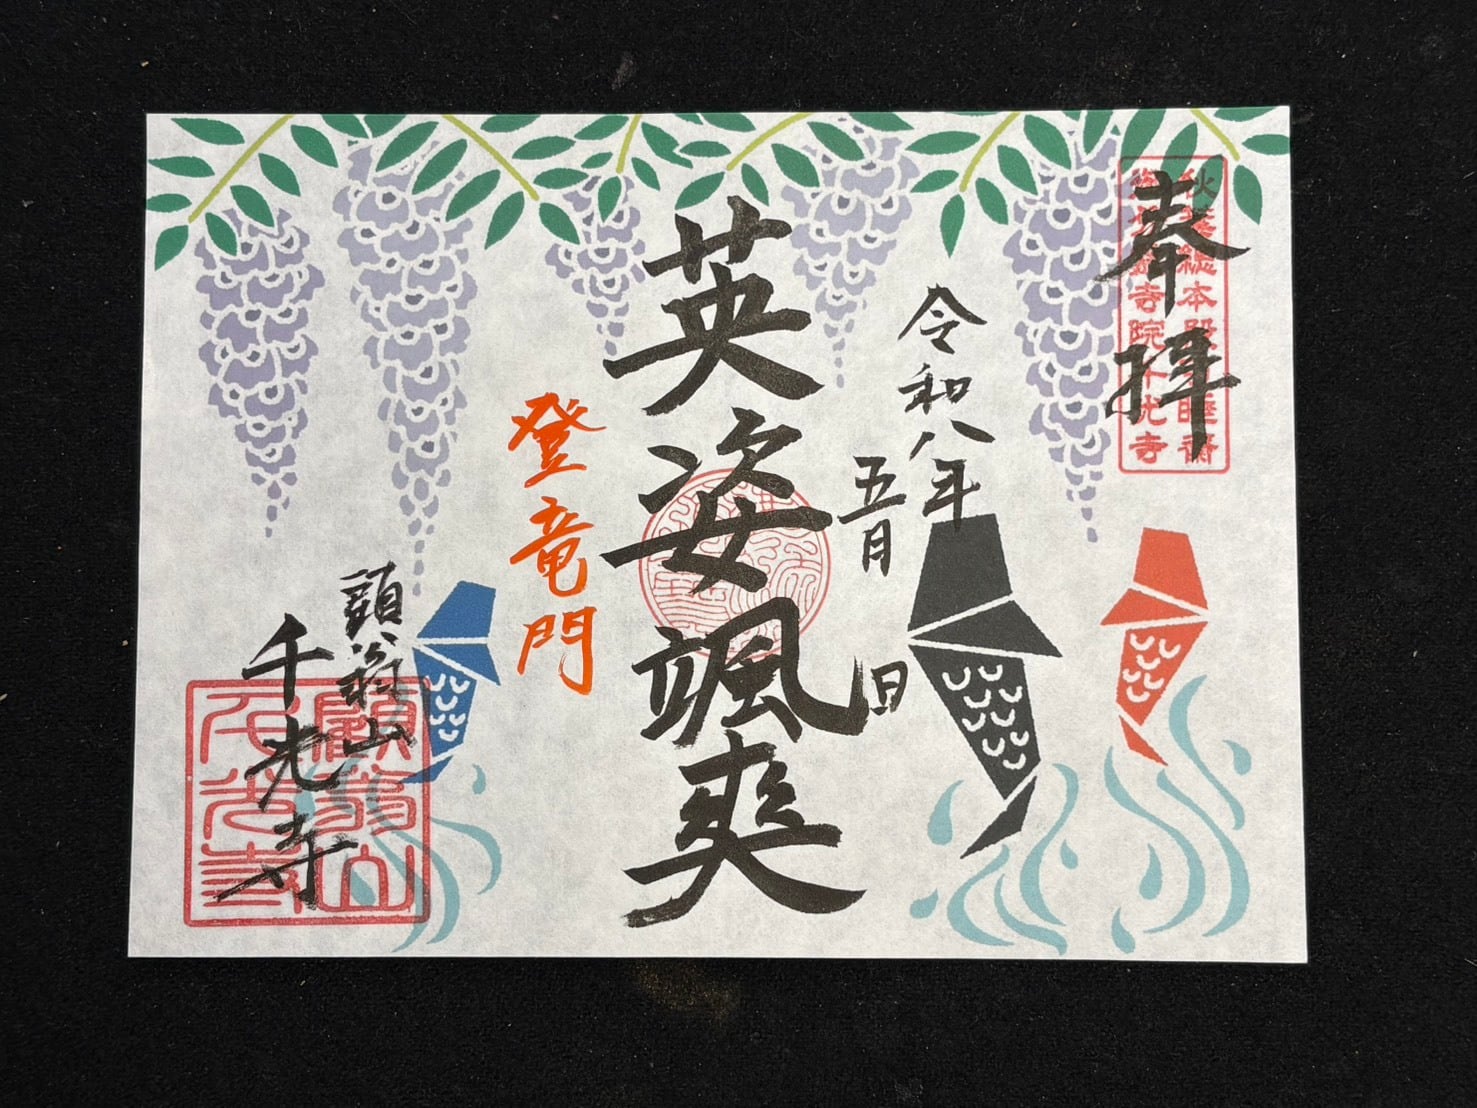 奉拝
秋葉總本殿可睡齋
寺院千光寺
令和八年
五月 日
英姿颯爽
登竜門
翁山
千光寺
翁山
千光寺